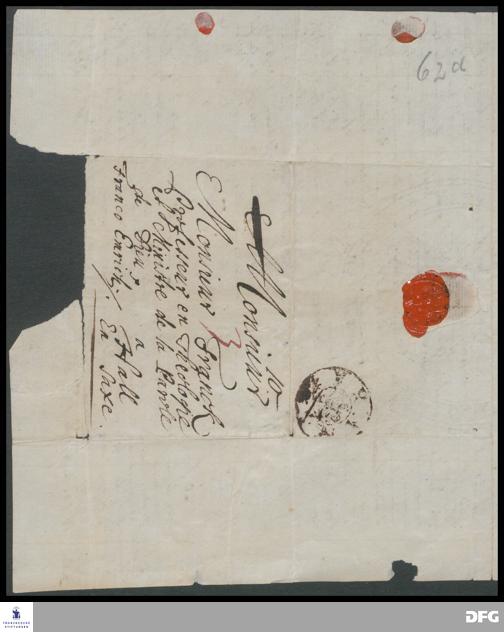 62d
10
Monsieur
Monsieur Franck
Professeur en Theologie
et Ministre de la Parole
de Dieu
a Hall
En Saxe.
Franco Emrich.
FRANCKESCHE
STIFTUNGEN
DFG